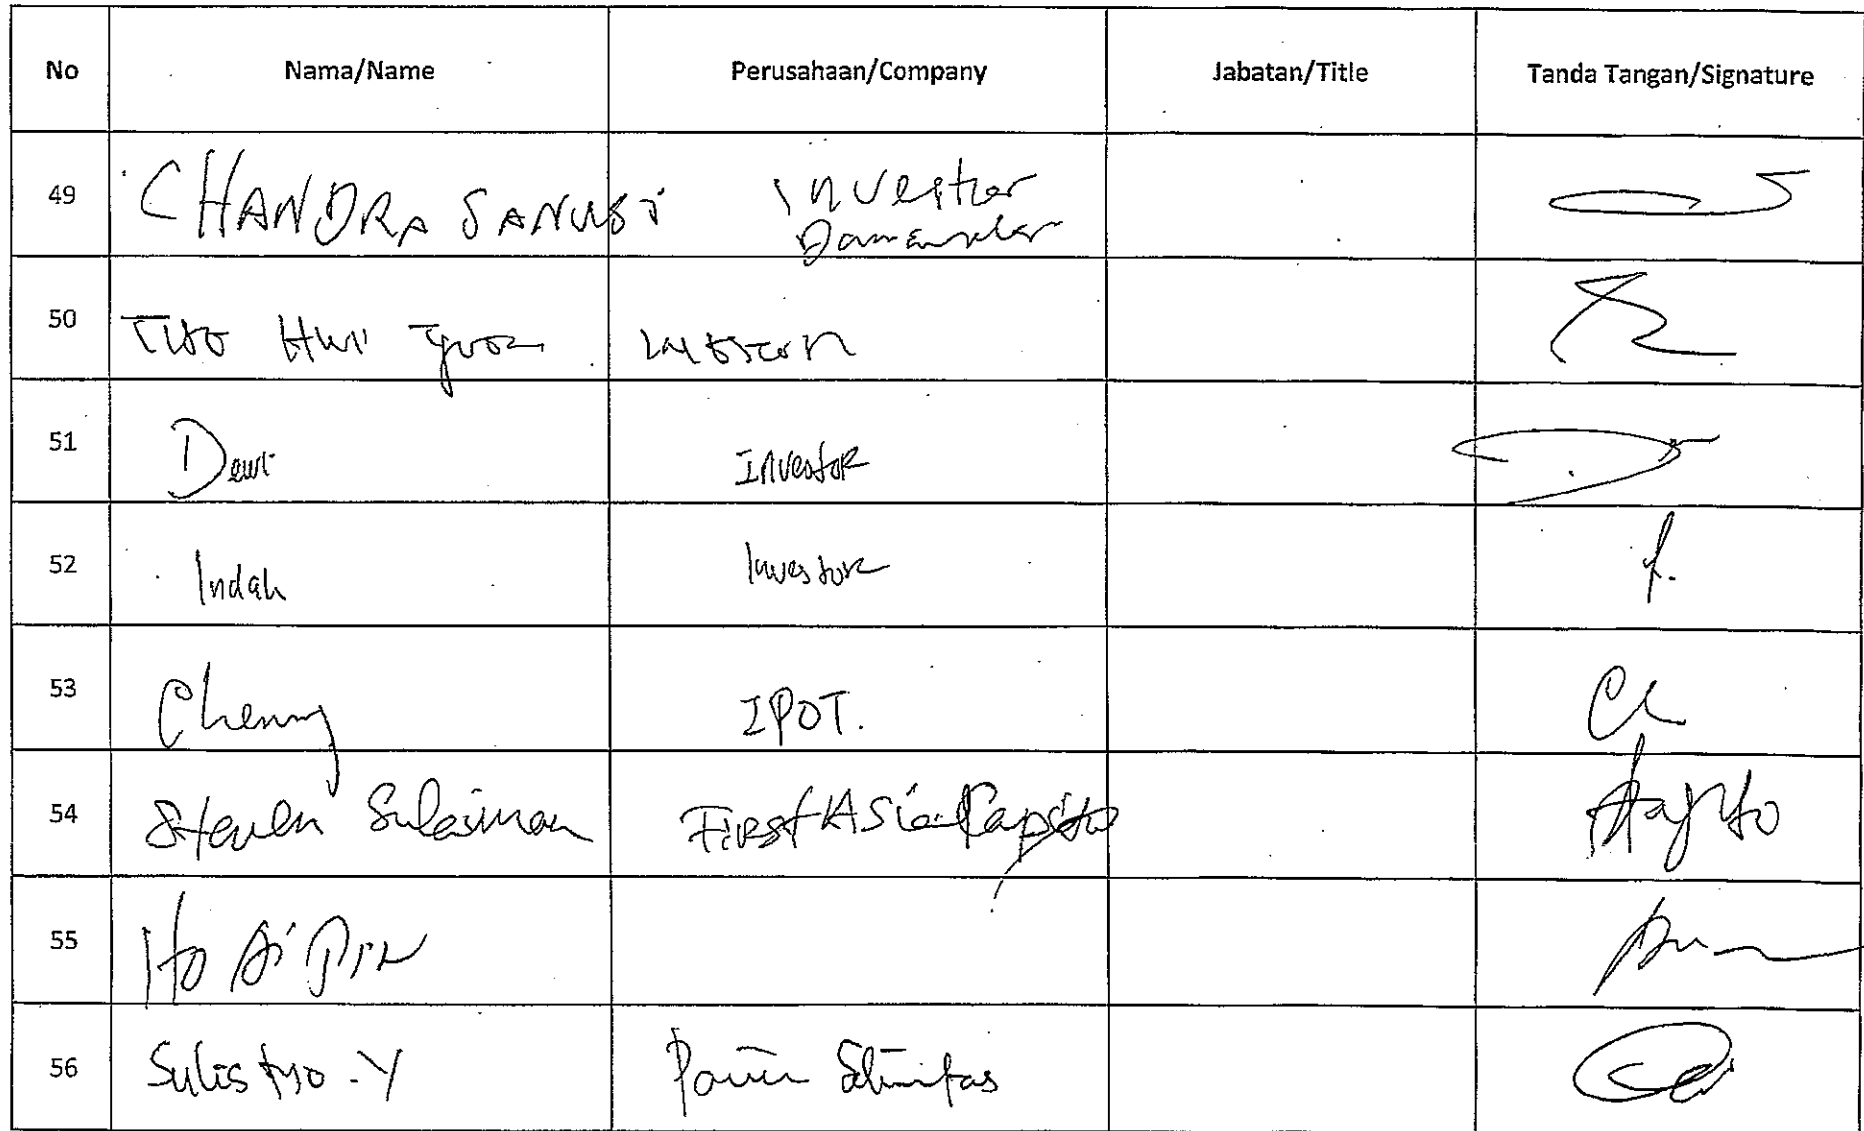 No Nama/Name Perusahaan/Company Jabatan/Title Tanda Tangan/Signature
49 CHANDRA SANUSI Investor
50 Hwi
51 Dewi Investor
52 Indah Investor
53 Chenny IPOT.
54 Steven Sulaiman First Asia Capital
55 Ho Ai Pin
56 Sulistyo - Y Panin Sekuritas